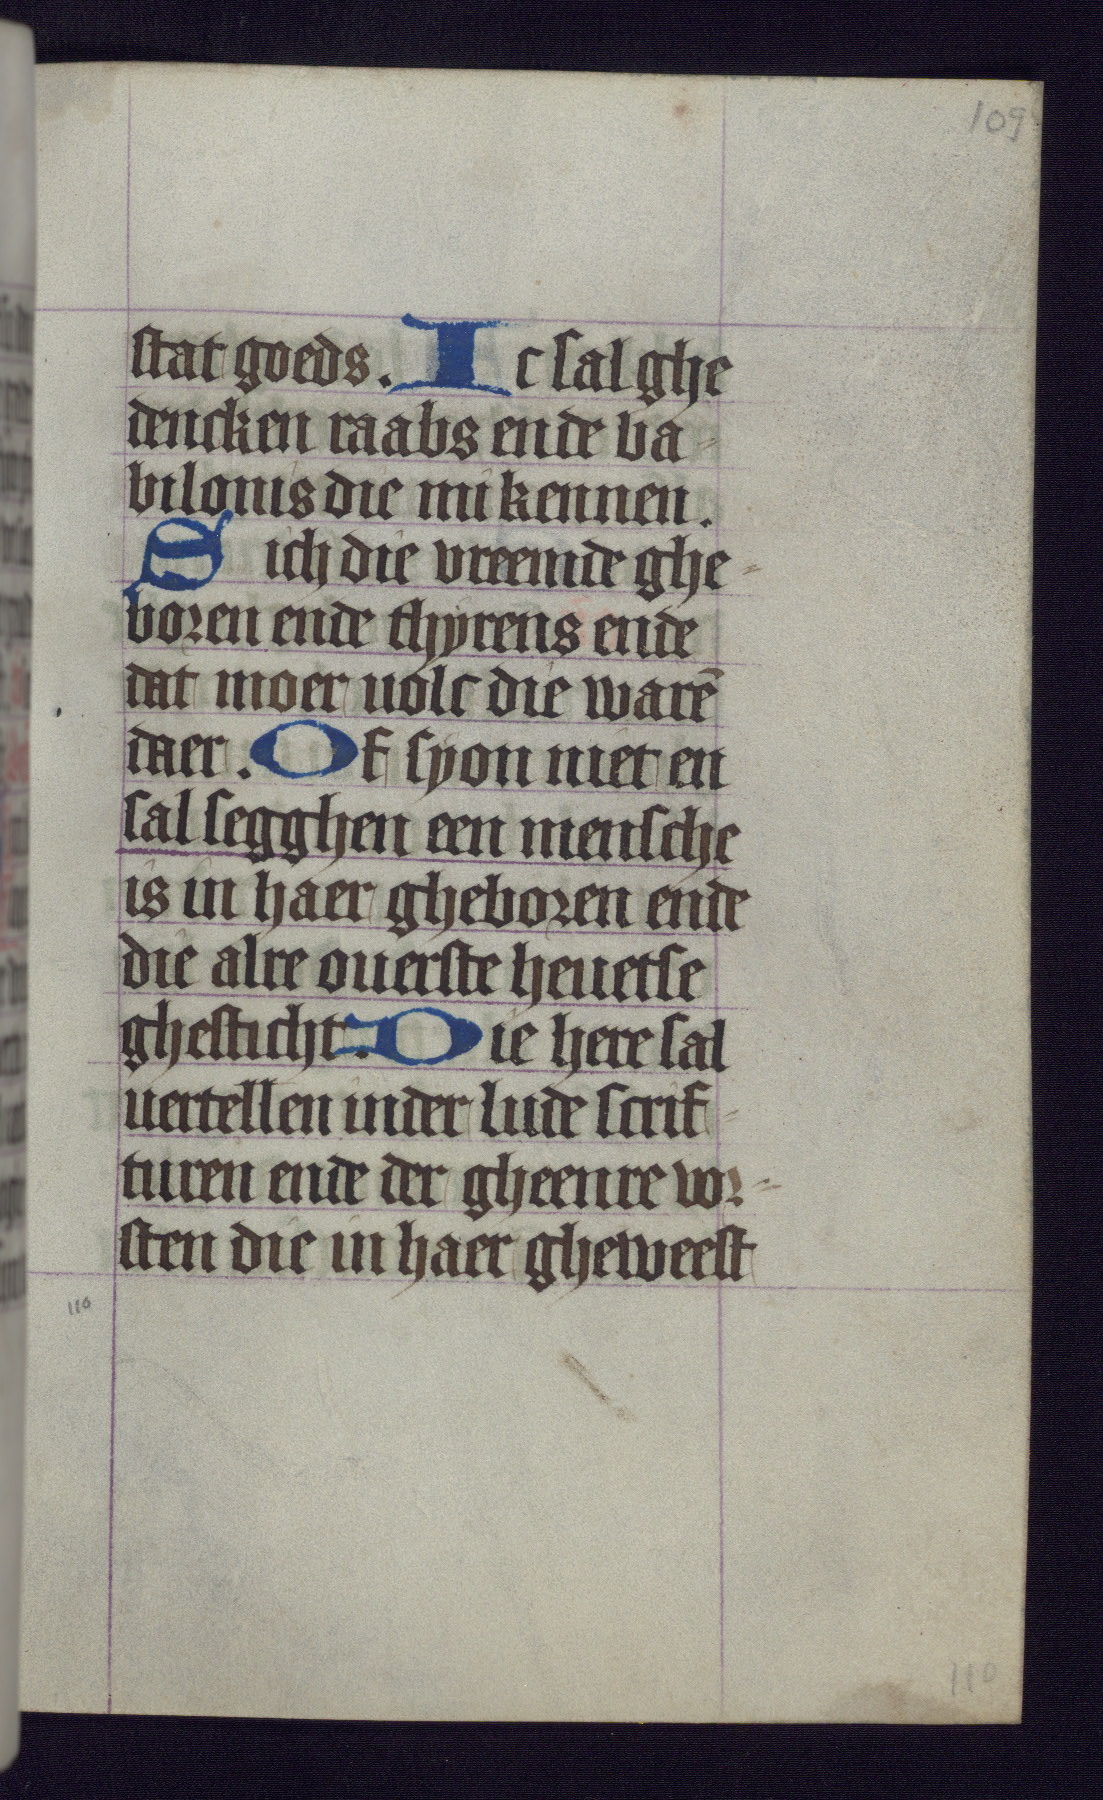 109
stat goeds. Ic sal ghe
dencken raabs ende ba-
bilonis die mi kennen.
Sich die vreemde ghe-
boren ende thyrens ende
dat moer uolc die warē
daer. Of syon niet en
sal segghen een mensche
is in haer gheboren ende
die alre ouerste heuetse
ghesticht. Die here sal
uertellen inder lude scrif-
turen ende der gheenre vor-
sten die in haer gheweest
110
110